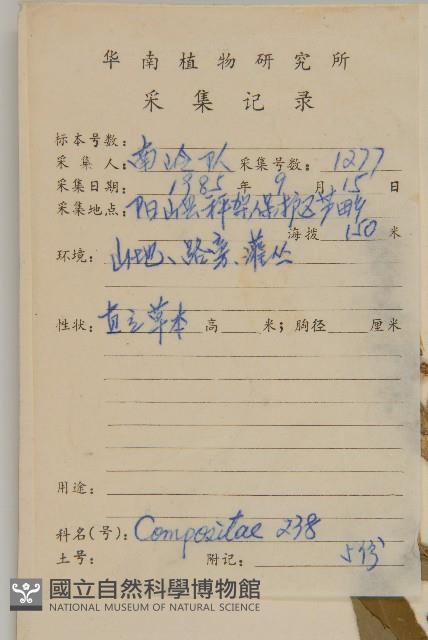 华南植物研究所
采集记录
标本号数：
采集人：南岭队 采集号数：1277
采集日期：1985年9月15日
采集地点：阳山县秤架保护区芦田乡
海拨 150 米
环境：山地、路旁、灌丛
性状：直立草本 高 米；胸径 厘米
用途：
科名(号)：Compositae 238
土号： 附记： 5份
國立自然科學博物館
NATIONAL MUSEUM OF NATURAL SCIENCE